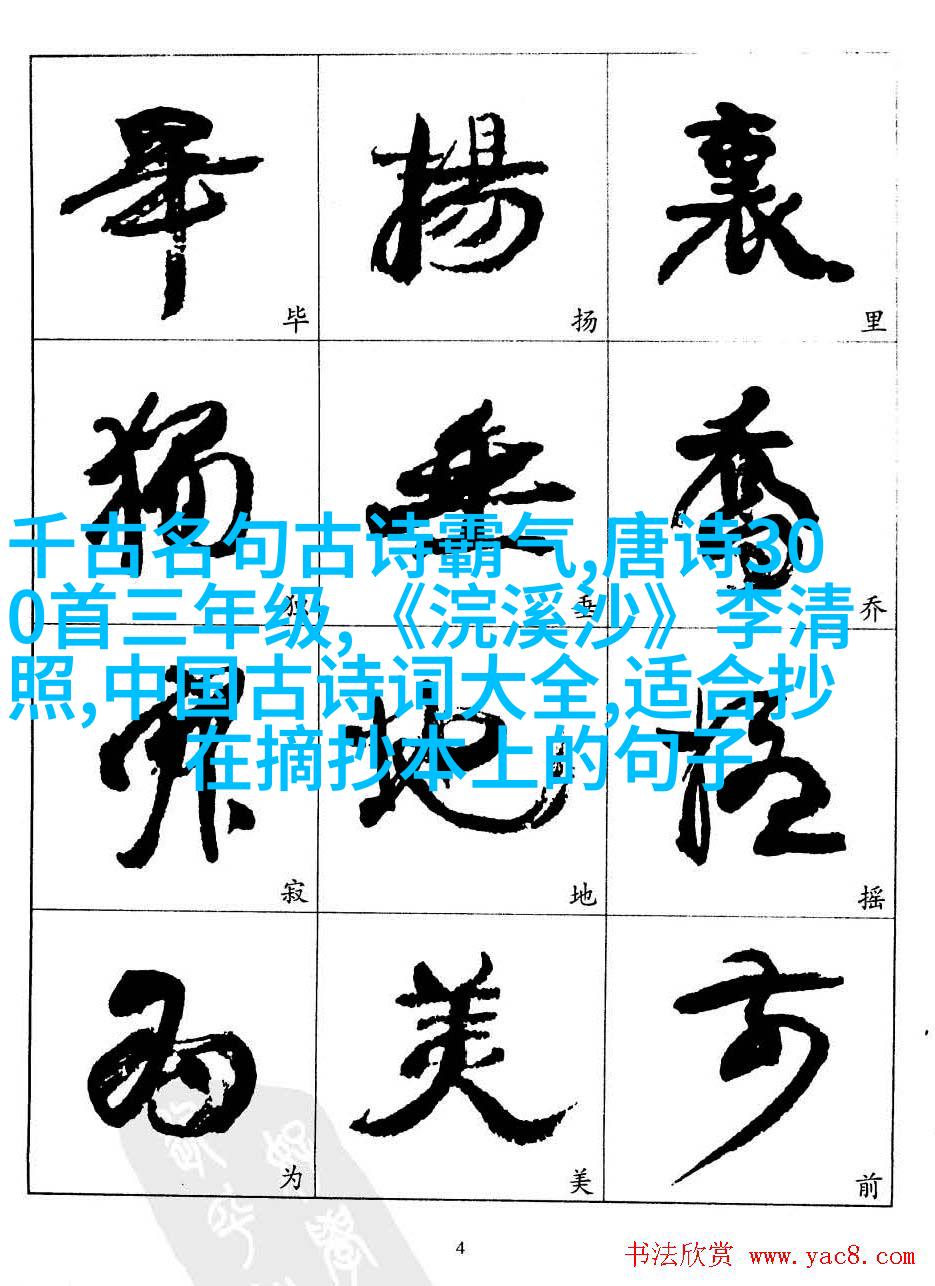 畢 揚 裏
毕 扬 里
獨 垂 喬
千古名句古诗霸气,唐诗30
0首三年级,《浣溪沙》李清
照,中国古诗词大全,适合抄
在摘抄本上的句子
独 垂 乔
寂 地 摇
寂 地 摇
為 美 前
为 美 前
4
书法欣赏 www.yac8.com